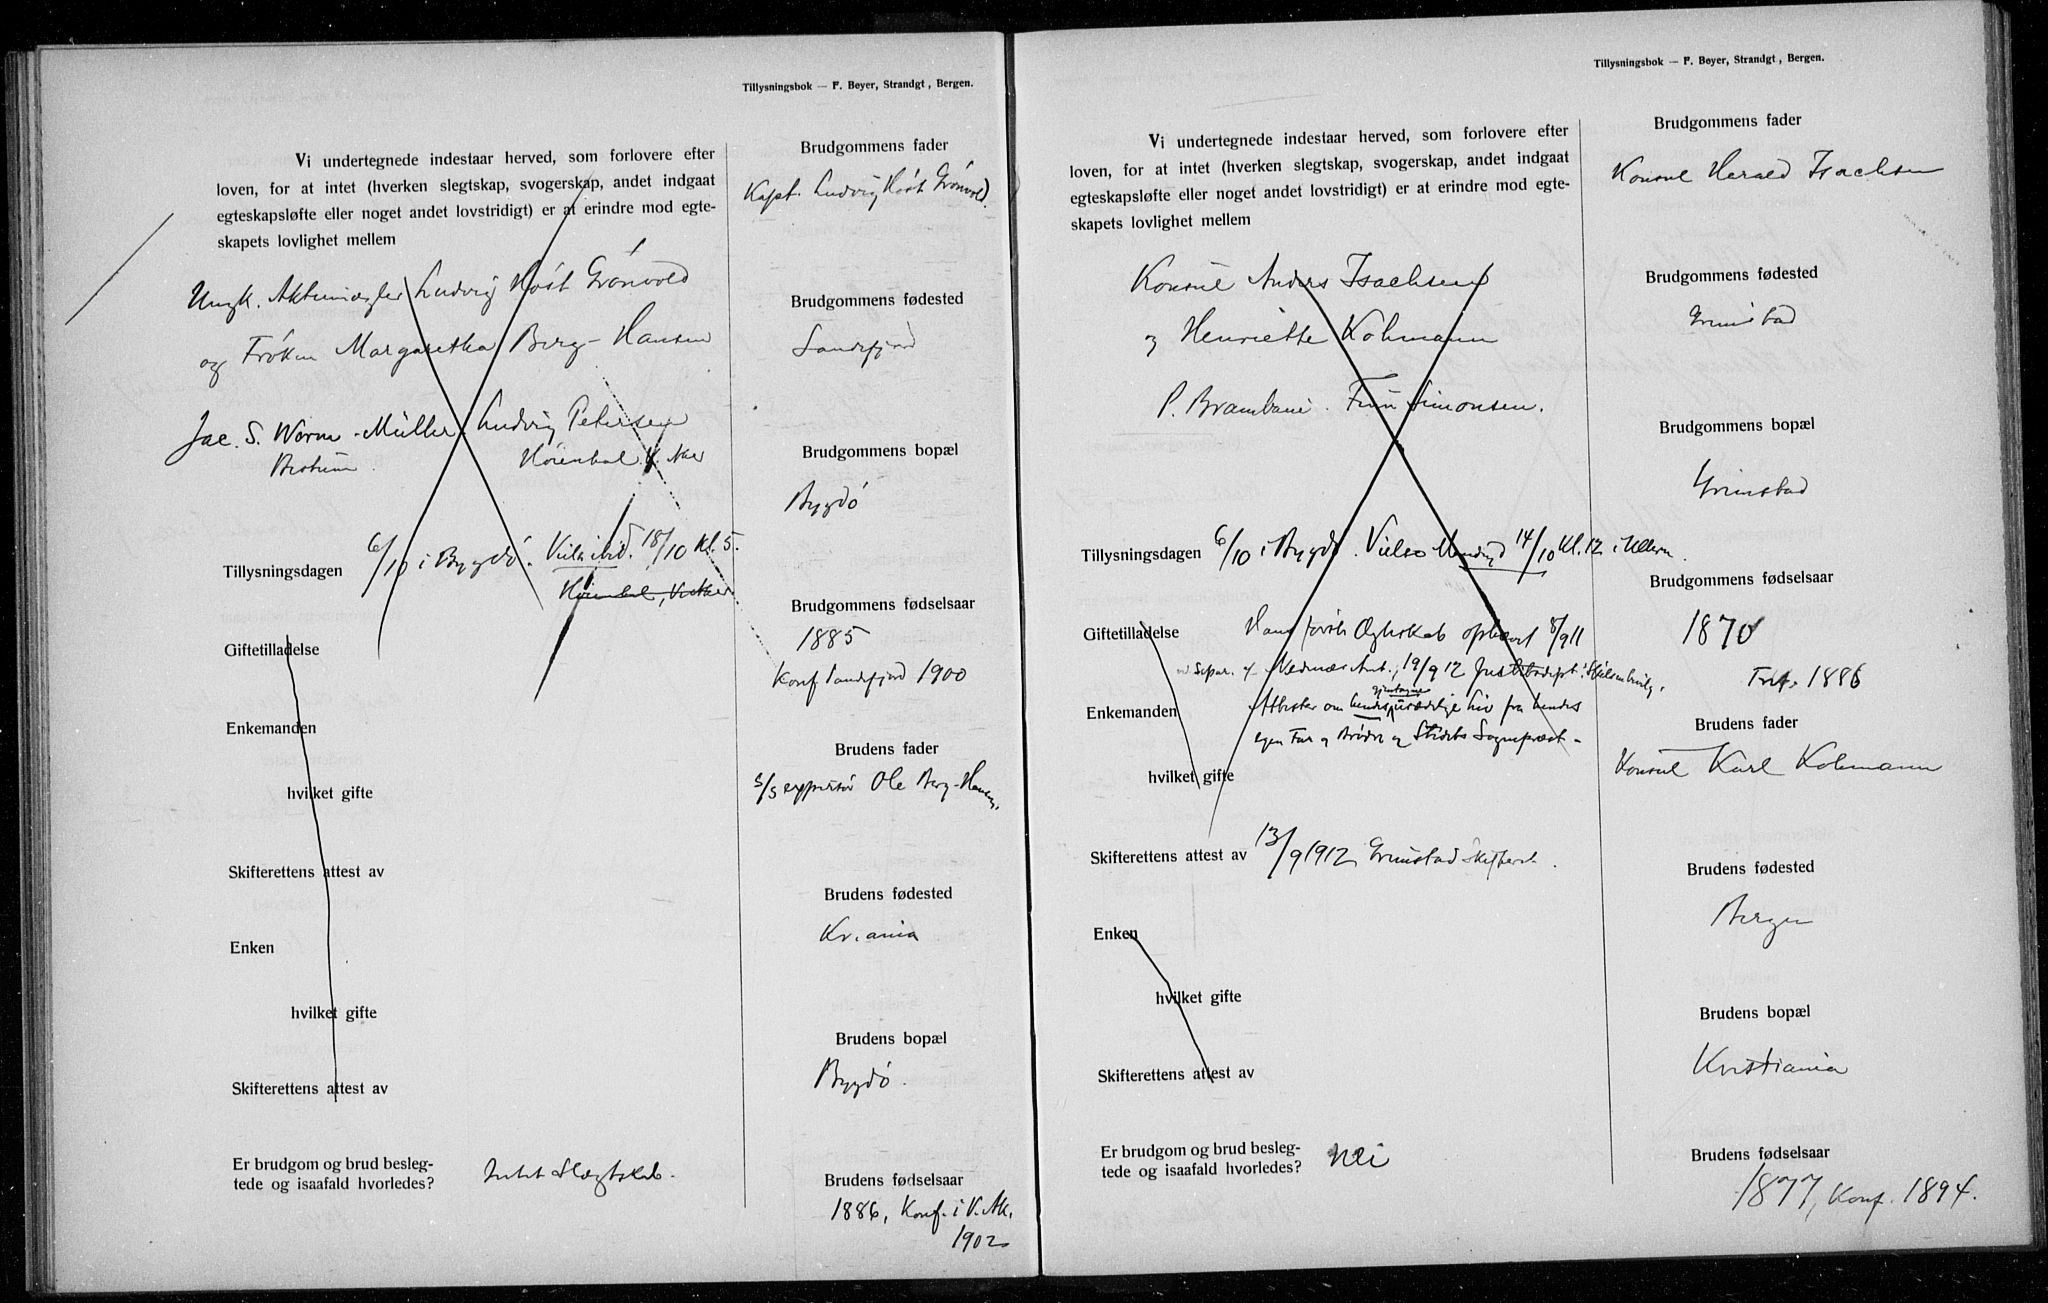 Tillysningsbok — F. Beyer, Strandgt, Bergen.
Vi undertegnede indestaar herved, som forlovere efter
loven, for at intet (hverken slegtskap, svogerskap, andet indgaat
egteskapsløfte eller noget andet lovstridigt) er at erindre mod egte-
skapets lovlighet mellem
Ungk. Aktiemægler Ludvig Høst Grönvold
og Frøken Margaretha Berg-Hansen
Jac. S. Worm-Müller Ludvig Petersen
Bestum Høienhal V. Aker
Tillysningsdagen 6/10 i Bygdö. Vies ibid. 18/10 Kl. 5.
Høienhal, V. Aker
Giftetilladelse
Enkemanden
hvilket gifte
Skifterettens attest av
Enken
hvilket gifte
Skifterettens attest av
Er brudgom og brud besleg-
tede og isaafald hvorledes? Intet Slægtskab.
Brudgommens fader
Kapt. Ludvig Høst Grönvold.
Brudgommens fødested
Sandefjord
Brudgommens bopæl
Bygdö
Brudgommens fødselsaar
1885
Konf. Sandefjord 1900
Brudens fader
S/S expeditør Ole Berg-Hansen.
Brudens fødested
Kr.ania
Brudens bopæl
Bygdö.
Brudens fødselsaar
1886, Konf. i V. Ak.
1902
Tillysningsbok — F. Beyer, Strandgt, Bergen.
Vi undertegnede indestaar herved, som forlovere efter
loven, for at intet (hverken slegtskap, svogerskap, andet indgaat
egteskapsløfte eller noget andet lovstridigt) er at erindre mod egte-
skapets lovlighet mellem
Konsul Anders Isachsen
og Henriette Kohmann
P. Brambani. Finn Simonsen.
Tillysningsdagen 6/10 i Bygdö. Vies Mandag 14/10 Kl. 12 i Ullern.
Giftetilladelse Hans første Ægteskab ophævet 8/9 11
ved Separ. af Nedenæs Amt, 19/9 12 Justitsdept.
Enkemanden Attester om hendes gjentagne usædelige Liv fra hendes
egen Far og Brødre og Stedets Sognepræst -
hvilket gifte
Skifterettens attest av 13/9 1912, Grimstad Skifteret.
Enken
hvilket gifte
Skifterettens attest av
Er brudgom og brud besleg-
tede og isaafald hvorledes? Nei
Brudgommens fader
Konsul Herald Isachsen
Brudgommens fødested
Grimstad
Brudgommens bopæl
Grimstad
Brudgommens fødselsaar
1870
1886
Brudens fader
Konsul Karl Kohmann
Brudens fødested
Bergen
Brudens bopæl
Kristiania
Brudens fødselsaar
1877, Konf. 1894.